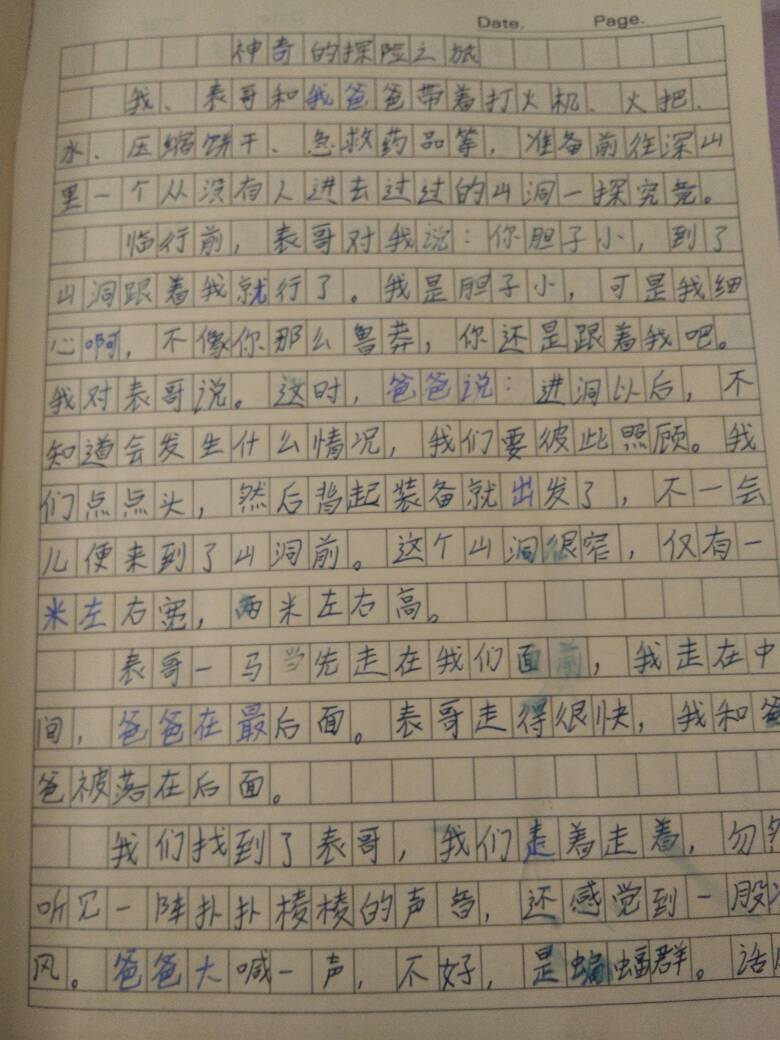 Date. Page.
神奇的探险之旅
我、表哥和我爸爸带着打火机、火把、
水、压缩饼干、急救药品等，准备前往深山
里一个从没有人进去过过的山洞一探究竟。
临行前，表哥对我说：你胆子小，到了
山洞跟着我就行了。我是胆子小，可是我细
心啊，不像你那么鲁莽，你还是跟着我吧。
我对表哥说。这时，爸爸说：进洞以后，不
知道会发生什么情况，我们要彼此照顾。我
们点点头，然后背起装备就出发了，不一会
儿便来到了山洞前。这个山洞很窄，仅有一
米左右宽，两米左右高。
表哥一马当先走在我们面前，我走在中
间，爸爸在最后面。表哥走得很快，我和爸
爸被落在后面。
我们找到了表哥，我们走着走着，勿
听见一阵扑扑棱棱的声音，还感觉到一股
风。爸爸大喊一声，不好，是蝙蝠群。话